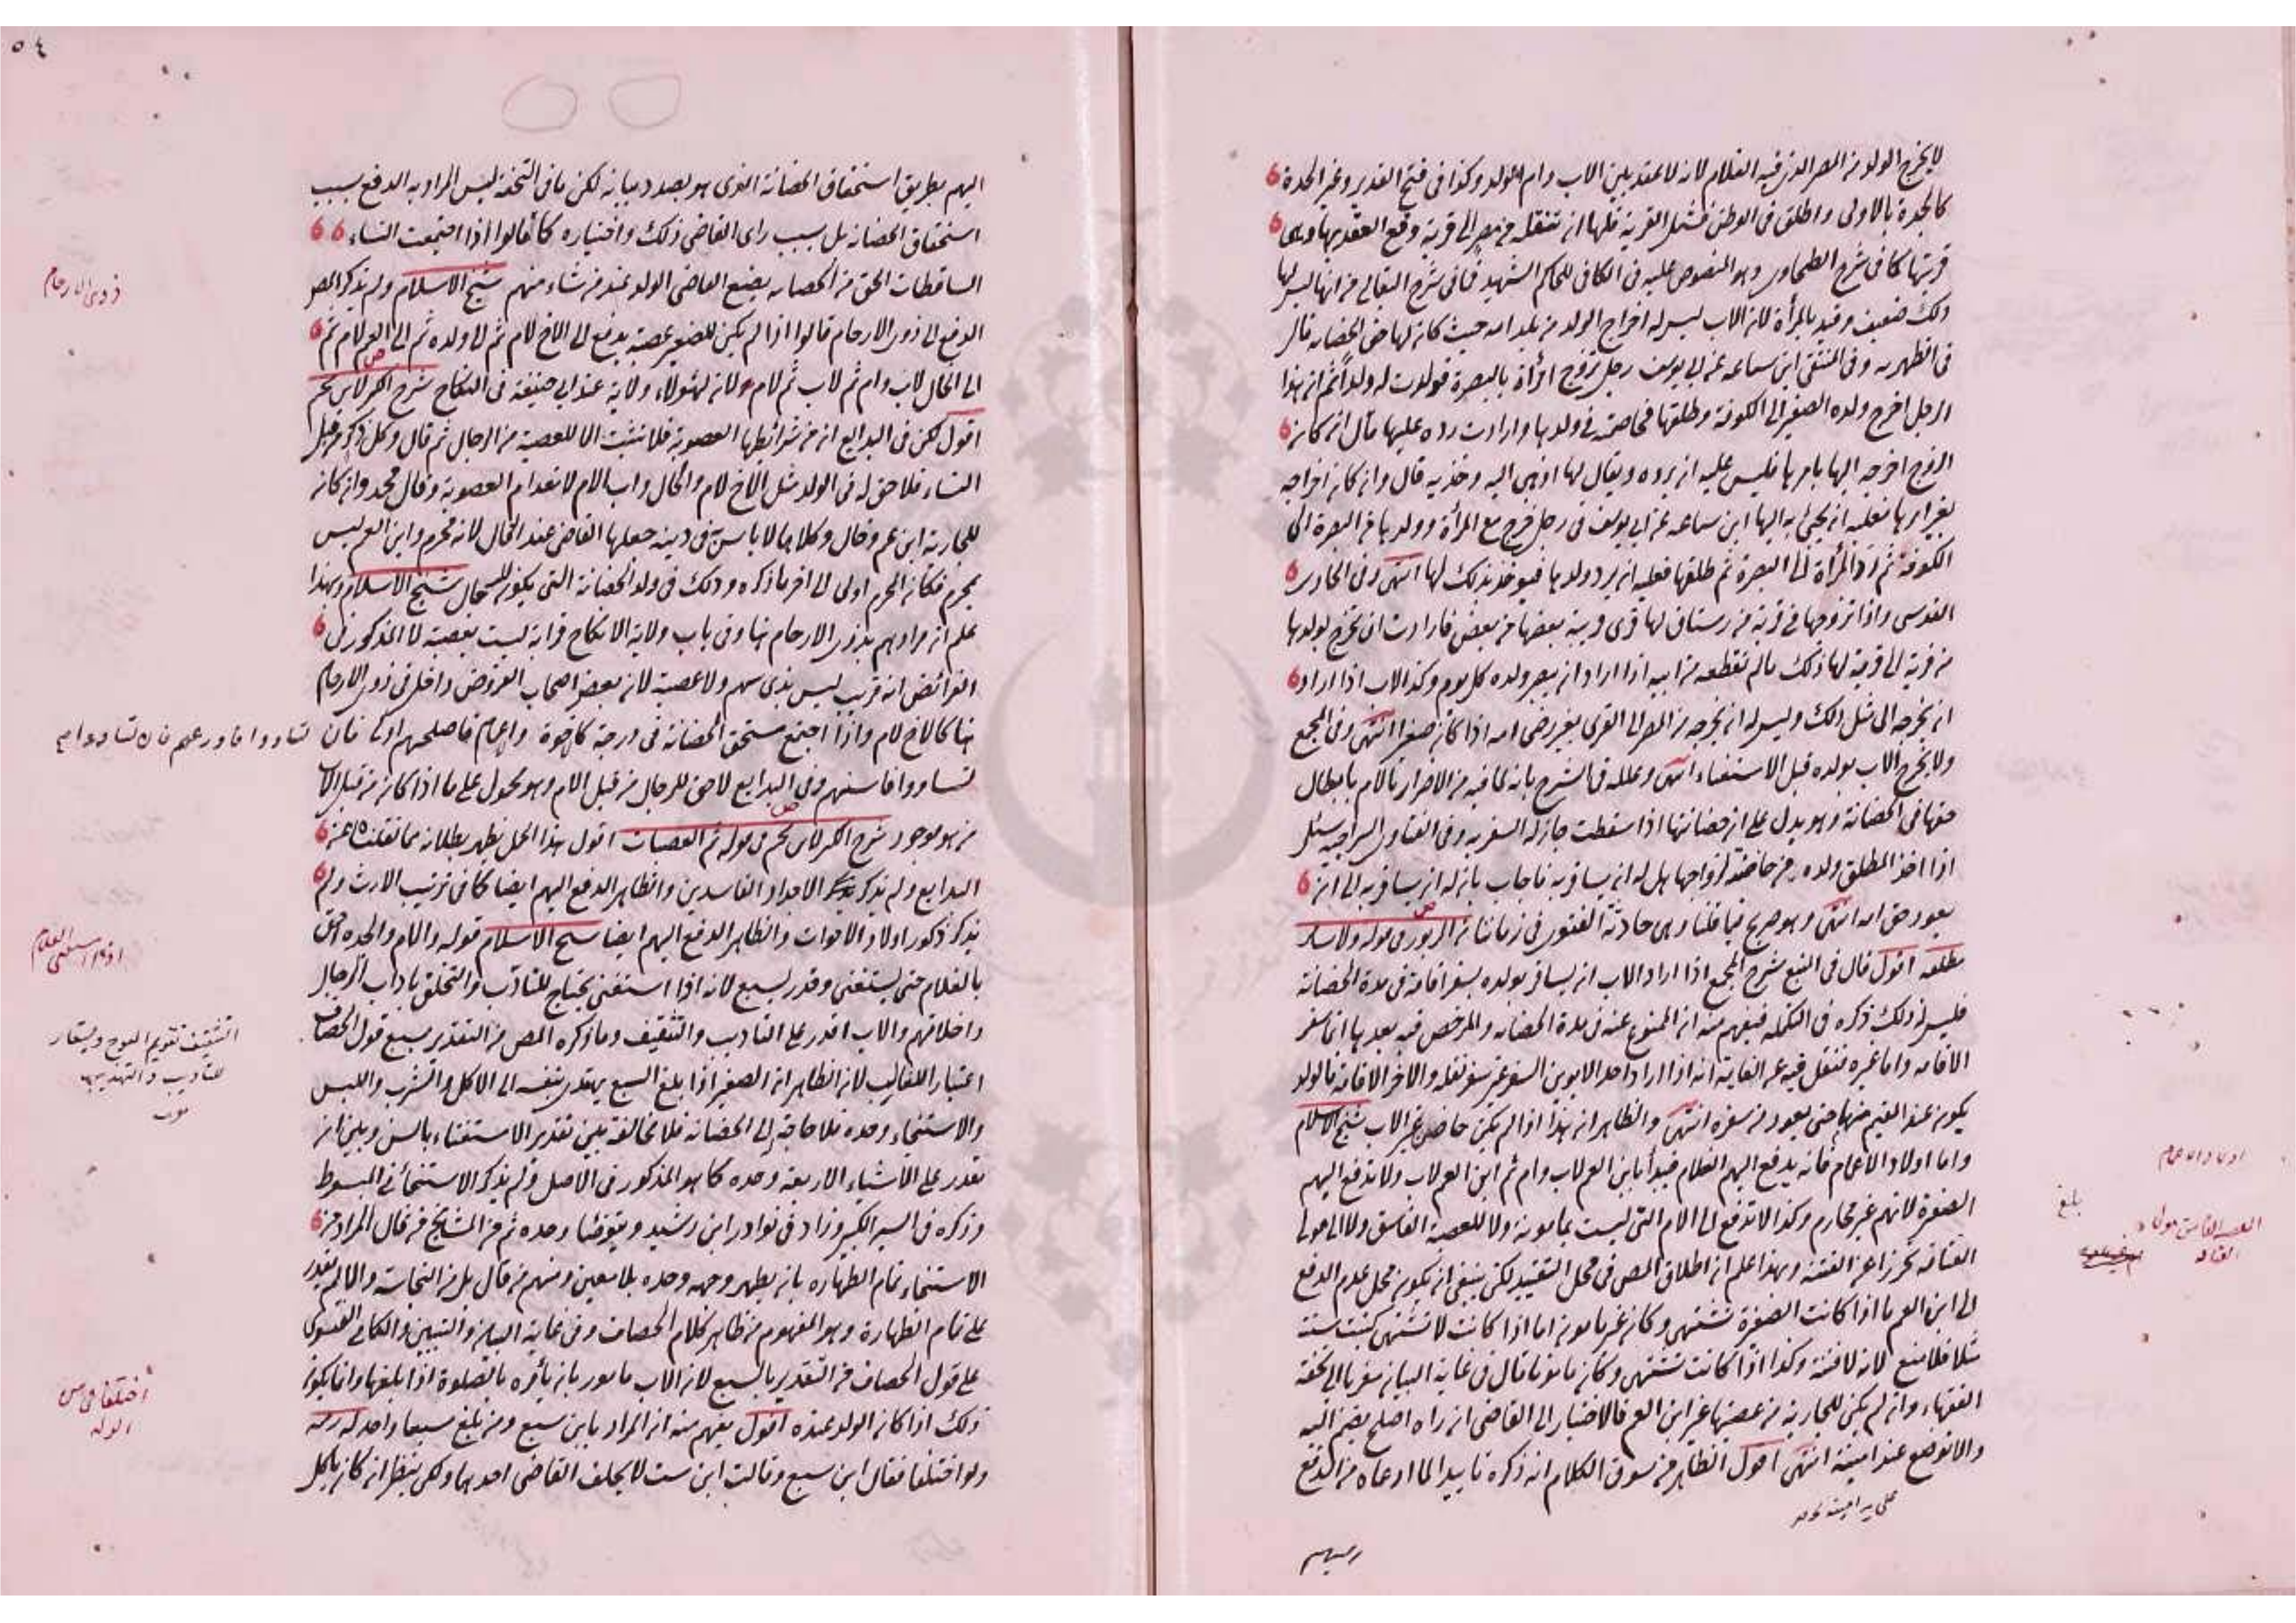 لا يخرج الولد من المصر الذي فيه الغلام لانه لا عقد بين الاب وام الولد وكذا في فتح القدير وغير الجدة
كالجدة بالاولى واطلق في الوطن فشمل القرية فلها ان تنقله من مصر الى قرية وقع العقد بها وهي
قريتها كما في شرح الطحاوي وهو المنصوص عليه في الكافي للحاكم الشهيد فما في شرح البقالي من انها ليس لها
ذلك ضعيف وقيد بالمرأة لان الاب ليس له اخراج الولد من بلد امه حيث كان لها حق الحضانة قال
في الظهيرية وفي المنتقى ابن سماعه عن ابي يوسف رجل تزوج امرأة بالبصرة فولدت له ولداً ثم ان هذا
الرجل اخرج ولده الصغير الى الكوفة وطلقها فخاصمته في ولدها وارادت رده عليها قال ان كان
الزوج اخرجه اليها بامرها فليس عليه ان يرده ويقال لها اذهبي اليه وخذيه قال وان كان اخراجه
بغير امرها فعليه ان يجئ به اليها ابن سماعه عن ابي يوسف في رجل خرج مع المرأة وولدها من البصرة الى
الكوفة ثم رد المرأة الى البصرة ثم طلقها فعليه ان يرد ولدها فيؤخذ بذلك لها انتهى وفي الحاوي
القدسي واذا تزوجها في قرية من رستاق لها قرى قريبة بعضها من بعض فارادت ان تخرج بولدها
من قرية الى قرية لها ذلك ما لم تقطعه من ابيه اذا اراد ان يبصر ولده كل يوم وكذا الاب اذا اراد
ان يخرجه الى مثل ذلك وليس له ان يخرجه من المصر الى القرى بغير رضى امه اذا كان صغيرا انتهى وفي المجمع
ولا يخرج الاب بولده قبل الاستغناء انتهى وعلله في الشرح بانه لما فيه من الاضرار بالام بابطال
حقها في الحضانة وهو يدل على ان حضانتها اذا سقطت جاز له السفر به وفي الفتاوى السراجية سئل
اذا اخذ المطلق ولده من حاضنته لزواجها هل له ان يسافر به فاجاب بان له ان يسافر به الى ان
يعود حق امه انتهى وهو صريح فيما قلنا وهي حادثة الفتوى في زماننا
مطلقه اقول قال في المنبع شرح المجمع اذا اراد الاب ان يسافر بولده سفر اقامة في مدة الحضانة
فليس له ذلك ذكره في التكملة فيفهم منه ان الممنوع عنه في مدة الحضانه والمرخص فيه بعدها انما سفر
الاقامه واما غيره فنقل فيه عن الغاية انه اذا اراد احد الابوين السفر غير سفر نقله والاخر الاقامة فالولد
يكون عند المقيم منهما حتى يعود من سفره انتهى والظاهر ان هذا اذا لم يكن حاضن غير الاب شيخ الاسلام
واما اولاد الاعمام فانه يدفع اليهم الغلام فيبدأ بابن العم لاب وام ثم ابن العم لاب ولا تدفع اليهم
الصغيرة لانهم غير محارم وكذا لا تدفع الى الام التي ليست بمامونة ولا للعصبة الفاسق ولا الى مولى
العتاقة تحرزا عن الفتنة وبهذا علم ان اطلاق المص في محل التقييد لكن ينبغي ان يكون محل عدم الدفع
الى ابن العم ما اذا كانت الصغيرة تشتهى وكان غير مامون اما اذا كانت لا تشتهى كبنت سنة
مثلا فلا منع لانه لا فتنة وكذا اذا كانت تشتهى وكان مامونا قال في غاية البيان معزيا الى تحفة
الفقهاء وان لم يكن للجارية من عصبتها غير ابن العم فالاختيار الى القاضي ان راه اصلح يضم اليه
والا توضع عند امينة انتهى اقول الظاهر من سوق الكلام انه ذكره تاييدا لما ادعاه من الدفع
اولاد الاعمام
بلغ
العصبه الفاسق ومولى
العتاقه
اليهم بطريق استحقاق الحضانة الذي هو بصدد بيانه لكن ما في التحفة ليس المراد به الدفع بسبب
استحقاق الحضانه بل بسبب راى القاضي ذلك واختياره كما قالوا اذا اجتمعت النساء
الساقطات الحق من الحضانه يضع القاضي الولد عند من شاء منهم شيخ الاسلام ولم يذكر المص
الدفع الى ذوي الارحام قالوا اذا لم يكن للصغير عصبة يدفع الى الاخ لام ثم الى ولده ثم الى العم لام ثم
الى الخال لاب وام ثم لاب ثم لام ولان لهؤلاء ولاية عند ابي حنيفة في النكاح شرح الكنز لابن نجيم
اقول لكن في البدايع ان من شرائطها العصوبة فلا تثبت الا للعصبة من الرجال ثم قال وكل ذكر من قبل
النساء فلا حق له في الولد مثل الاخ لام والخال واب الام لانعدام العصوبة وقال محمد وان كان
للجارية ابن عم وخال وكلاهما لا باس به في دينه جعلها القاضي عند الخال لانه محرم وابن العم ليس
بمحرم فكان المحرم اولى الى اخر ما ذكره وذلك في ولد الحضانة التي يكون للخال شيخ الاسلام وبهذا
علم ان مرادهم بذوي الارحام هنا وفي باب ولاية الانكاح قرابة ليست بعصبة لا المذكور في
الفرائض انه قريب ليس بذي سهم ولا عصبة لان بعض اصحاب الفروض داخل في ذوي الارحام
هنا كالاخ لام واذا اجتمع مستحق الحضانة في درجة كالاخوة والاعمام فاصلحهم اولى فان تساووا فاورعهم فان تساووا
تساووا فاسنهم وفي البدايع لا حق للرجال من قبل الام وهو محمول على ما اذا كان من قبل الاب
من هو موجود شرح الكنز لابن نجيم في قوله ثم العصبات اقول هذا الحمل يظهر بطلانه مما نقلناه عن
البدايع ولم يذكر الاجداد الفاسدين والظاهر الدفع اليهم ايضا كما في ترتيب الارث ولم
يذكر ذكور اولاد الاخوات والظاهر الدفع اليهم ايضا شيخ الاسلام قوله والام والجده احق
بالغلام حتى يستغني وقدر بسبع لانه اذا استغنى يحتاج للتاديب والتخلق باداب الرجال
واخلاقهم والاب اقدر على التاديب والتثقيف وما ذكره المص من التقدير بسبع قول الخصاف
اعتبارا للغالب لان الظاهر ان الصغير اذا بلغ السبع يهتدي بنفسه الى الاكل والشرب واللبس
والاستنجاء وحده فلا حاجة الى الحضانه فلا مخالفة بين تقدير الاستغناء بالسن وبين ان
يقدر على الاشياء الاربعة وحده كما هو المذكور في الاصل ولم يذكر الاستنجاء في المبسوط
وذكره في السير الكبير وزاد في نوادر ابن رشيد ويتوضأ وحده ثم من المشايخ من قال المراد من
الاستنجاء تمام الطهاره بان يطهر وجهه وحده بلا معين ومنهم من قال بل من النجاسة وان لم يقدر
على تمام الطهارة وهو المفهوم من ظاهر كلام الخصاف وفي غاية البيان والتبيين والكافي الفتوى
على قول الخصاف من التقدير بالسبع لان الاب مامور بان يأمره بالصلوة اذا بلغها وانما يكون
ذلك اذا كان الولد عنده اقول يفهم منه ان المراد بابن سبع من بلغ سبعا
ولو اختلفا فقال ابن سبع وقالت ابن ست لا يحلف القاضي احدهما ولكن ينظر ان كان ياكل
ذوى الارحام
التثقيف تقويم المعوج ويستعار
للتاديب والتهذيب
اختلفا في سن
الولد
٥٤